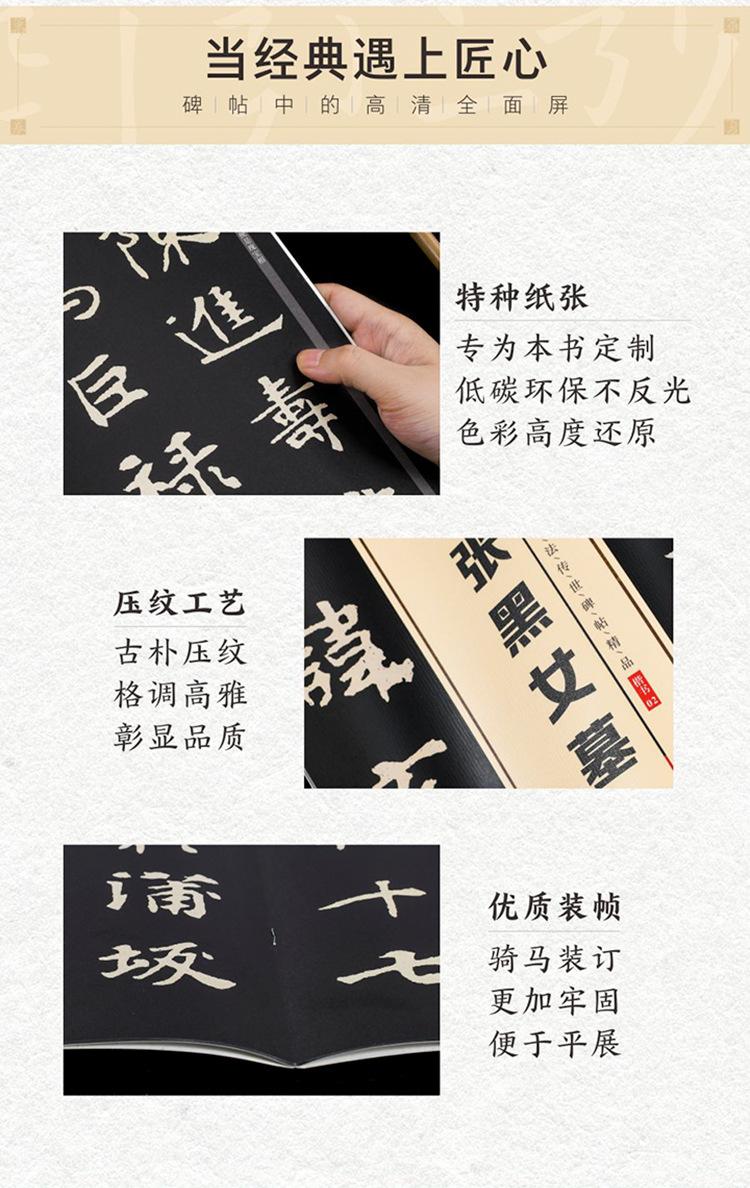 当经典遇上匠心
碑帖中的高清全面屏
陈
进
巨
寿
禄
特种纸张
专为本书定制
低碳环保不反光
色彩高度还原
压纹工艺
古朴压纹
格调高雅
彰显品质
諱
张黑女墓
法传世碑帖精品
楷书02
蒲
坂
十
七
优质装帧
骑马装订
更加牢固
便于平展